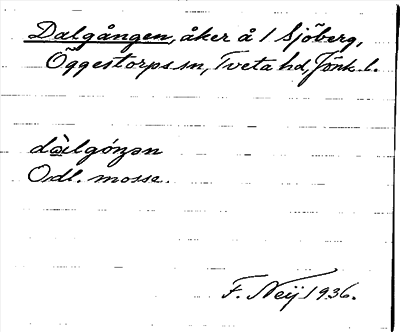 Dalgången, åker å 1 Sjöberg,
Öggestorps sn, Tveta hd, Jönk. l.
dàlgóŋən
Odl. mosse.
F. Neij 1936.